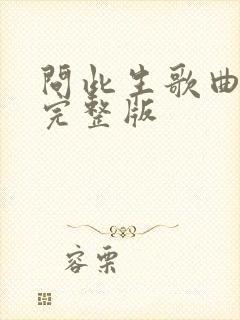 問此生歌曲
完整版
容栗